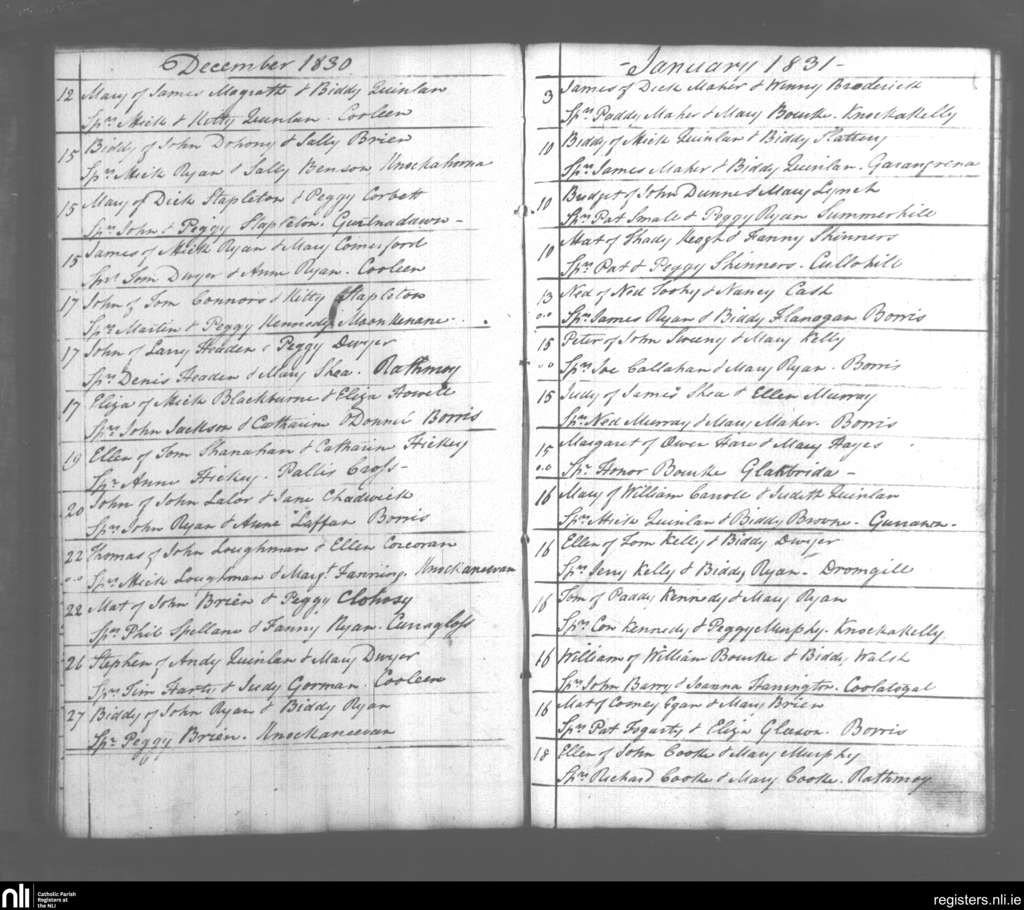 December 1830
12 Mary of James Magrath & Biddy Quinlan
Sprs Mick & Kitty Quinlan. Cooleen
15 Biddy of John Dohony & Sally Brien
Sprs Mick Ryan & Sally Benson Knockahorna
15 Mary of Dick Stapleton & Peggy Corbett
Sprs John & Peggy Stapleton.
15 James of Mick Ryan & Mary Comerford
Sprs Tom Dwyer & Anne Ryan. Cooleen
17 John of Tom Connors & Kitty Stapleton
Sprs Martin & Peggy Kennedy. Moonkenane.
17 John of Larry Headen & Peggy Dwyer
Sprs Denis Headen & Mary Shea. Rathmoy
17 Eliza of Mick Blackburne & Eliza Howell
Sprs John Jackson & Catharine Borris
19 Ellen of Tom Shanahan & Catharine Hickey
Spr Anne Hickey. Pallis Cross-
20 John of John Lalor & Jane Chadwick
Sprs John Ryan & Anne Laffan Borris
22 Thomas of John Loughman & Ellen Corcoran
o-o Sprs Mick Loughman & Margt Fanning. Knockaneevan
22 Mat of John Brien & Peggy Clohosy
Sprs Phil Spellane & Fanny Ryan.
26 Stephen of Andy Quinlan & Mary Dwyer
Sprs Tim Harty & Judy Gorman. Cooleen
27 Biddy of John Ryan & Biddy Ryan
Spr Peggy Brien. Knockaneevan
-January 1831-
3 James of Dick Maher & Winny Broderick
Sprs Paddy Maher & Mary Bourke. Knockakelly
10 Biddy of Mick Quinlan & Biddy Slattery
Sprs James Maher & Biddy Quinlan. Garangrena
10 Bridget of John Dunne & Mary Lynch
Sprs Pat Small & Peggy Ryan Summerhill
10 Mat of Thady Keogh & Fanny Skinners
Sprs Pat & Peggy Skinners. Cullohill
13 Ned of Ned Toohy & Nancy Cash
o.o Sprs James Ryan & Biddy Flanagan Borris
15 Peter of John Sweeny & Mary Kelly
o o Sprs Joe Callahan & Mary Ryan. Borris
15 Judy of James Shea & Ellen Murray
Sprs Ned Murray & Mary Maher. Borris
15 Margaret of Owen Hare & Mary Hayes
o.o Spr Honor Bourke Glakbrida-
16 Mary of William Carroll & Judith Quinlan
Sprs Mick Quinlan & Biddy Browne. Gurrawn-
16 Ellen of Tom Kelly & Biddy Dwyer
Sprs Jerry Kelly & Biddy Ryan- Dromgill
16 Tom of Paddy Kennedy & Mary Ryan
Sprs Con Kennedy & Peggy Murphy. Knockakelly.
16 William of William Bourke & Biddy Walsh
Sprs John Barry & Joanna Hanington.
16 Mat of Cooney Egan & Mary Brien
Sprs Pat Fogarty & Eliza Gleason. Borris
18 Ellen of John Cooke & Mary Murphy
Sprs Richard Cooke & Mary Cooke. Rathmoy
nli
Catholic Parish
Registers at
the NLI
registers.nli.ie